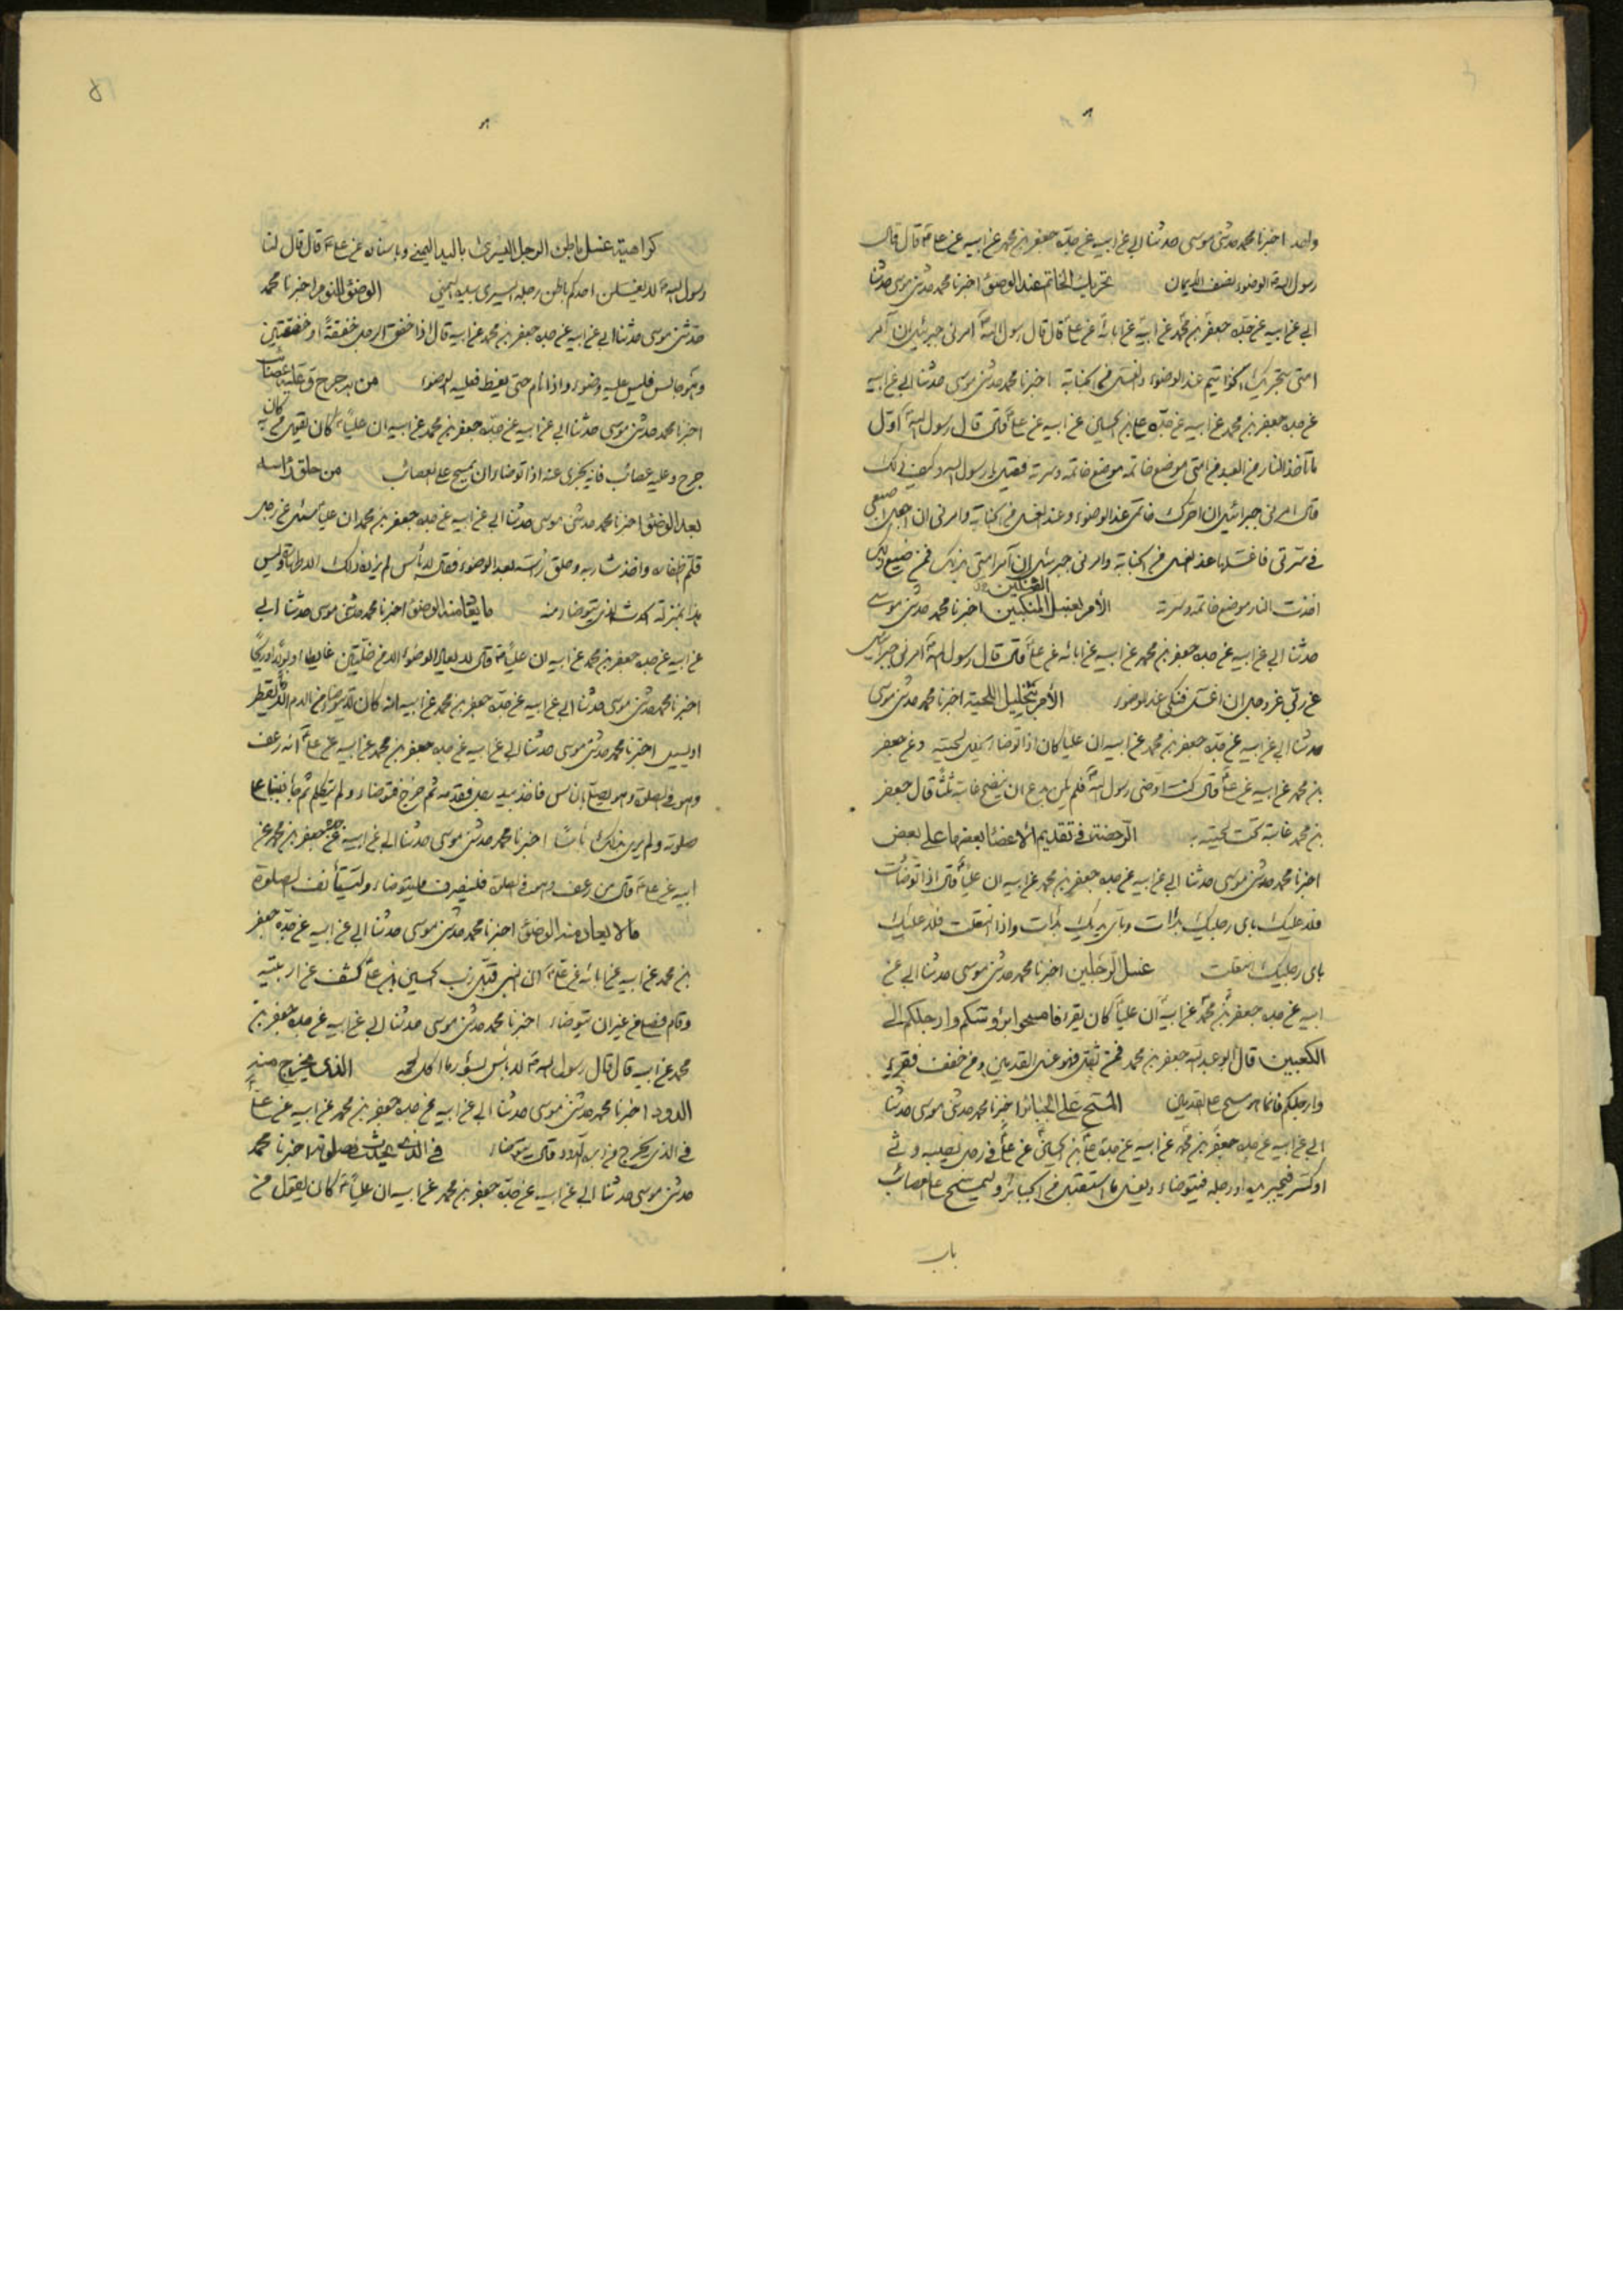 واحد اخبرنا محمد حدثنى موسى حدثنا ابى عن ابيه عن جده جعفر بن محمد عن ابيه عن على ع قال قال
رسول الله ص الوضوء نصف الايمان تحريك الخاتم عند الوضوء اخبرنا محمد حدثنى موسى حدثنا
ابى عن ابيه عن جده جعفر بن محمد عن ابيه عن ابائه عن على ع قال قال رسول الله ص امرنى جبرئيل ان آمر
امتى بتحريك الخواتيم عند الوضوء والغسل من الجنابة اخبرنا محمد حدثنى موسى حدثنا ابى عن ابيه
عن جده جعفر بن محمد عن ابيه عن جده على بن الحسين عن ابيه عن على ع قال قال رسول الله ص اول
ما تأخذ النار من العبد من امتى موضع خاتمه وسرته فقيل يا رسول الله وكيف ذلك
قال امرنى جبرائيل ان احرك خاتمى عند الوضوء وعند الغسل من الجنابة وامرنى ان اجعل اصبعى
فى سرتى فاغسلها عند الغسل من الجنابة وامرنى جبرئيل ان آمر امتى بذلك فمن ضيع ذلك
اخذت النار موضع خاتمه وسرته الأمر بغسل المنكبين اخبرنا محمد حدثنى موسى
حدثنا ابى عن ابيه عن جده جعفر بن محمد عن ابيه عن ابائه عن على ع قال قال رسول الله ص امرنى جبرائيل
عن ربى عز وجل ان اغسل فنكى عند الوضوء الأمر بتخليل اللحية اخبرنا محمد حدثنى موسى
حدثنا ابى عن ابيه عن جده جعفر بن محمد عن ابيه ان عليا كان اذا توضأ يخلل لحيته وعن جعفر
بن محمد عن ابيه عن على ع قال كنت اوضى رسول الله ص فلم يكن يدع ان ينضح غابته ثلثا قال جعفر
بن محمد غابته تحت لحيته الرخصة فى تقديم الأعضاء بعضها على بعض
اخبرنا محمد حدثنى موسى حدثنا ابى عن ابيه عن جده جعفر بن محمد عن ابيه ان عليا ع قال اذا توضأت
فلا عليك باى رجليك بدأت وباى يديك بدأت واذا انتعلت فلا عليك
باى رجليك انتعلت غسل الرجلين اخبرنا محمد حدثنى موسى حدثنا ابى عن
ابيه عن جده جعفر بن محمد عن ابيه ان عليا ع كان يقرء فامسحوا برؤسكم وارجلكم الى
الكعبين قال ابو عبد الله جعفر بن محمد فمن ثقل فهو غسل القدمين ومن خفف فقرء
وارجلكم فانما هو مسح على القدمين المسح على الجبائر اخبرنا محمد حدثنى موسى حدثنا
ابى عن ابيه عن جده جعفر بن محمد عن ابيه عن جده على بن الحسين عن على ع فى رجل
او كسر فيجبر يده او رجله فيتوضاء ويغسل ما استقبل من الجبائر وليمسح على العصائب
باب
كراهية غسل باطن الرجل اليسرى باليد اليمنى وباسناده عن على ع قال قال لنا
رسول الله ص لا يغسلن احدكم باطن رجله اليسرى بيده اليمنى الوضوء للنوم اخبرنا محمد
حدثنى موسى حدثنا ابى عن ابيه عن جده جعفر بن محمد عن ابيه قال اذا خفق الرجل خفقة او خفقتين
وهو جالس فليس عليه وضوء واذا نام حتى يغط فعليه الوضوء من به جرح وعليه عصائب
اخبرنا محمد حدثنى موسى حدثنا ابى عن ابيه عن جده جعفر بن محمد عن ابيه ان عليا ع كان يقول من كان به
جرح وعليه عصائب فانه يجزى عنه اذا توضاء ان يمسح على العصائب من حلق رأسه
بعد الوضوء اخبرنا محمد حدثنى موسى حدثنا ابى عن ابيه عن جده جعفر بن محمد ان عليا ع سئل عن رجل
قلم اظفاره واخذ شاربه وحلق رأسه بعد الوضوء فقال لا بأس لم يزده ذلك الا طهارة وليس
هذا بمنزلة الحدث الذى يتوضأ منه ما يعاد منه الوضوء اخبرنا محمد حدثنى موسى حدثنا ابى
عن ابيه عن جده جعفر بن محمد عن ابيه ان عليا ع قال لا يعاد الوضوء الا من خلتين غائط او بول او ريح
اخبرنا محمد حدثنى موسى حدثنا ابى عن ابيه عن جده جعفر بن محمد عن ابيه انه كان لا يتوضأ من الدم الا ما يقطر
او يسيل اخبرنا محمد حدثنى موسى حدثنا ابى عن ابيه عن جده جعفر بن محمد عن ابيه عن على ع انه رعف
وهو فى الصلوة وهو يصلى بالناس فاخذ بيد رجل فقدمه ثم خرج فتوضاء ولم يتكلم ثم جاء فبنا على
صلوته ولم ير بذلك بأسا اخبرنا محمد حدثنى موسى حدثنا ابى عن ابيه عن جده جعفر بن محمد عن
ابيه عن على ع قال من رعف وهو فى الصلوة فلينصرف فليتوضاء وليستأنف الصلوة
ما لا يعاد منه الوضوء اخبرنا محمد حدثنى موسى حدثنا ابى عن ابيه عن جده جعفر
بن محمد عن ابيه عن ابائه عن على ع ان النبى قبل زب الحسين بن على كشف عن اربيته
وقام فصلى من غير ان يتوضاء اخبرنا محمد حدثنى موسى حدثنا ابى عن ابيه عن جده جعفر بن
محمد عن ابيه قال قال رسول الله ص لا بأس بسؤر ما اكل لحمه الذى يخرج منه
الدود اخبرنا محمد حدثنى موسى حدثنا ابى عن ابيه عن جده جعفر بن محمد عن ابيه عن على ع
فى الذى يخرج من دبره الدود قال يتوضاء فى الذى يحدث فى صلوته اخبرنا محمد
حدثنى موسى حدثنا ابى عن ابيه عن جده جعفر بن محمد عن ابيه ان عليا ع كان يقول من